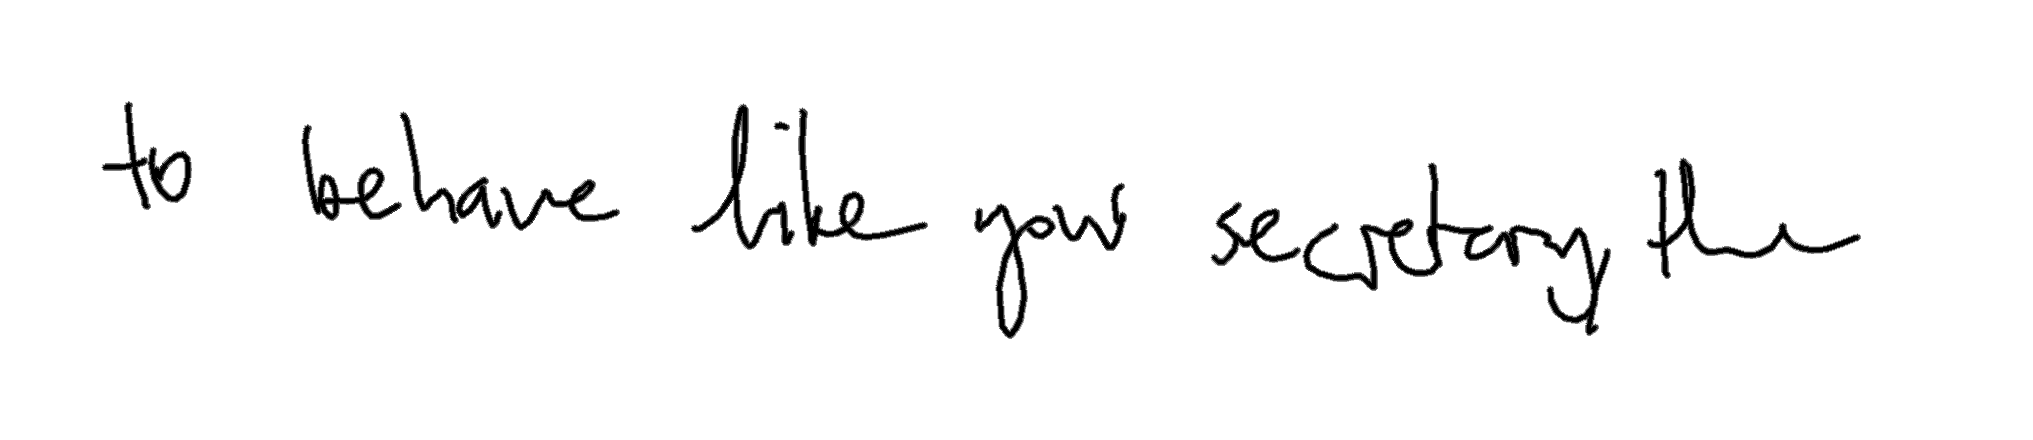 to behave like your secretary the